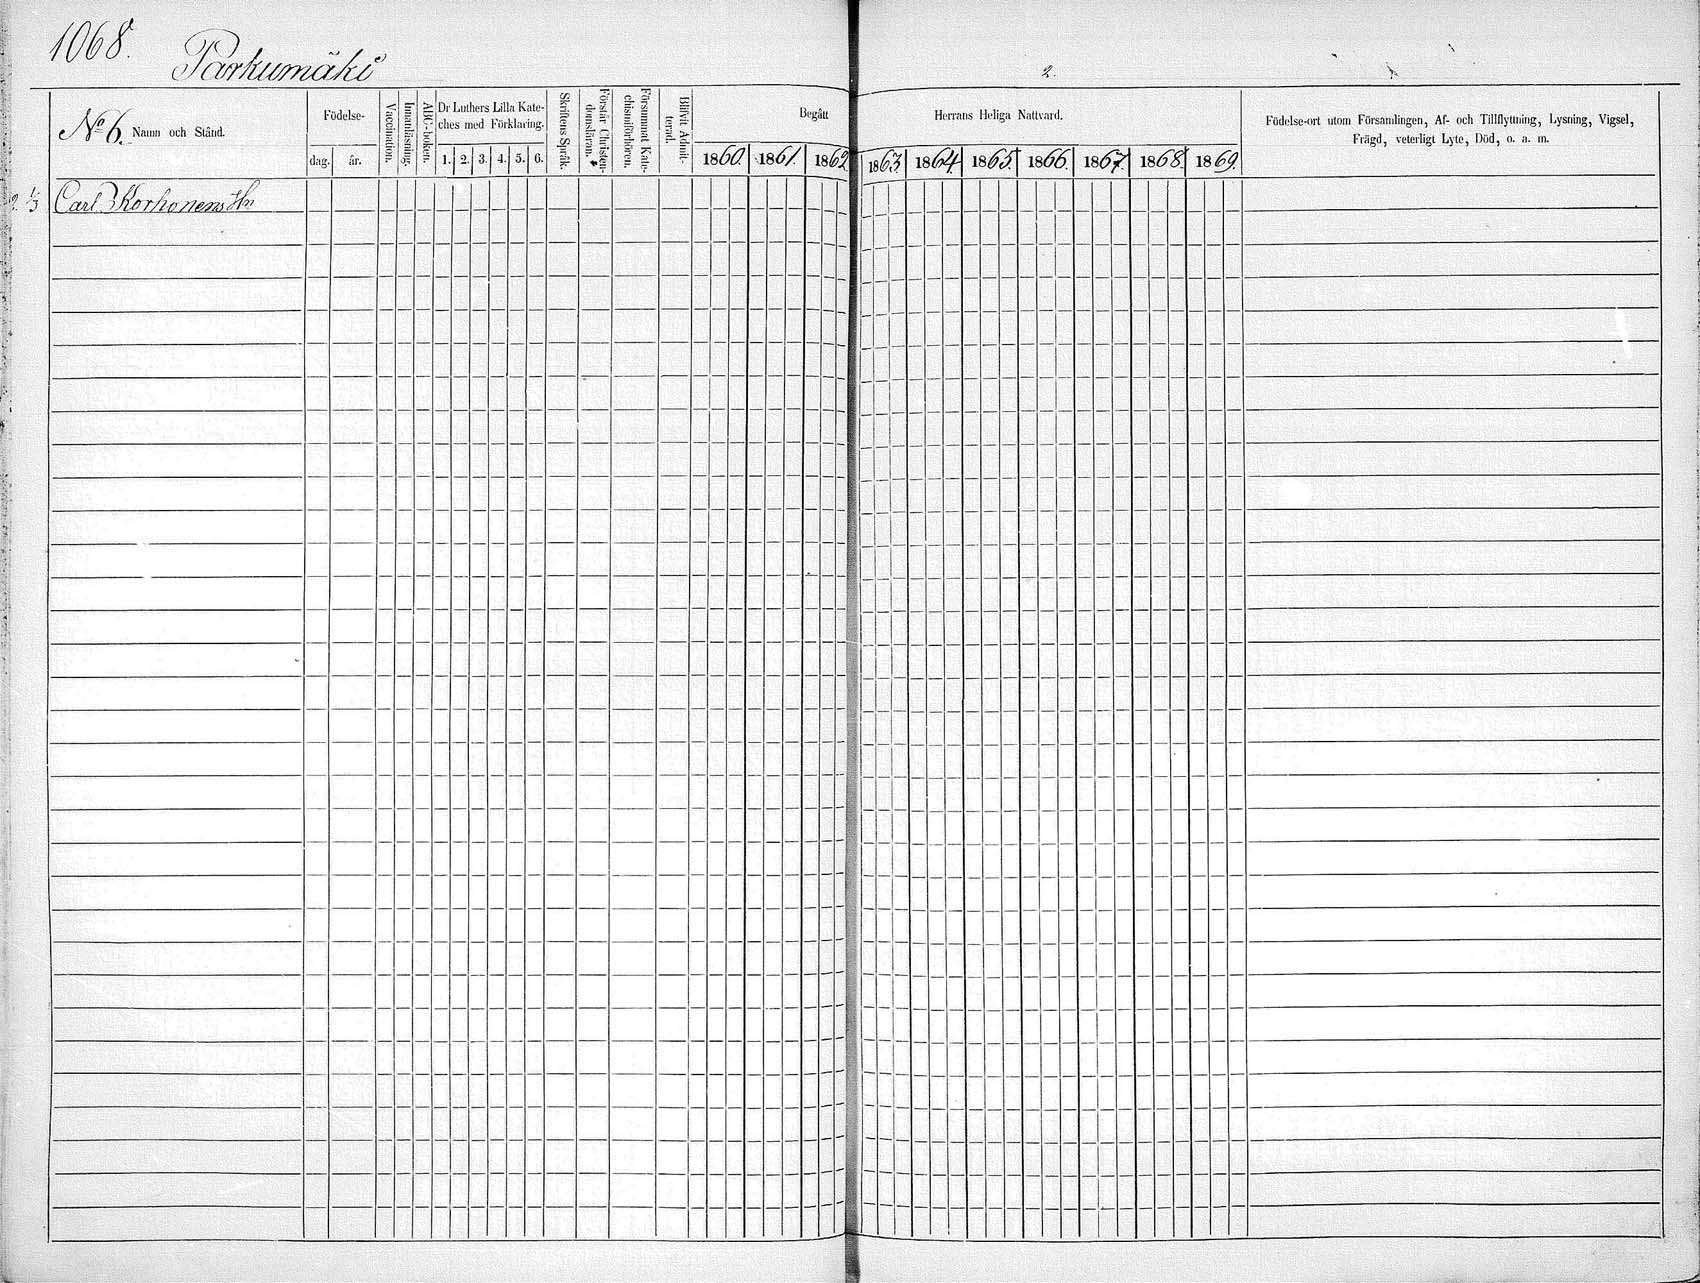 1068.
Parkumäki
2.
No 6. Namn och Stånd.
Födelse-
dag. år.
Vaccination.
Innanläsning.
ABC-boken.
Dr Luthers Lilla Kate-
ches med Förklaring.
1. 2. 3. 4. 5. 6.
Skriftens Språk.
Förstår Christen-
domsläran.
Försummat Kate-
chismiförhören.
Blifvit Admit-
terad.
Begått Herrans Heliga Nattvard.
1860. 1861. 1862 1863. 1864. 1865. 1866. 1867. 1868. 1869.
Födelse-ort utom Församlingen, Af- och Tillflyttning, Lysning, Vigsel,
Frägd, veterligt Lyte, Död, o. a. m.
1/3 Carl Korhonens